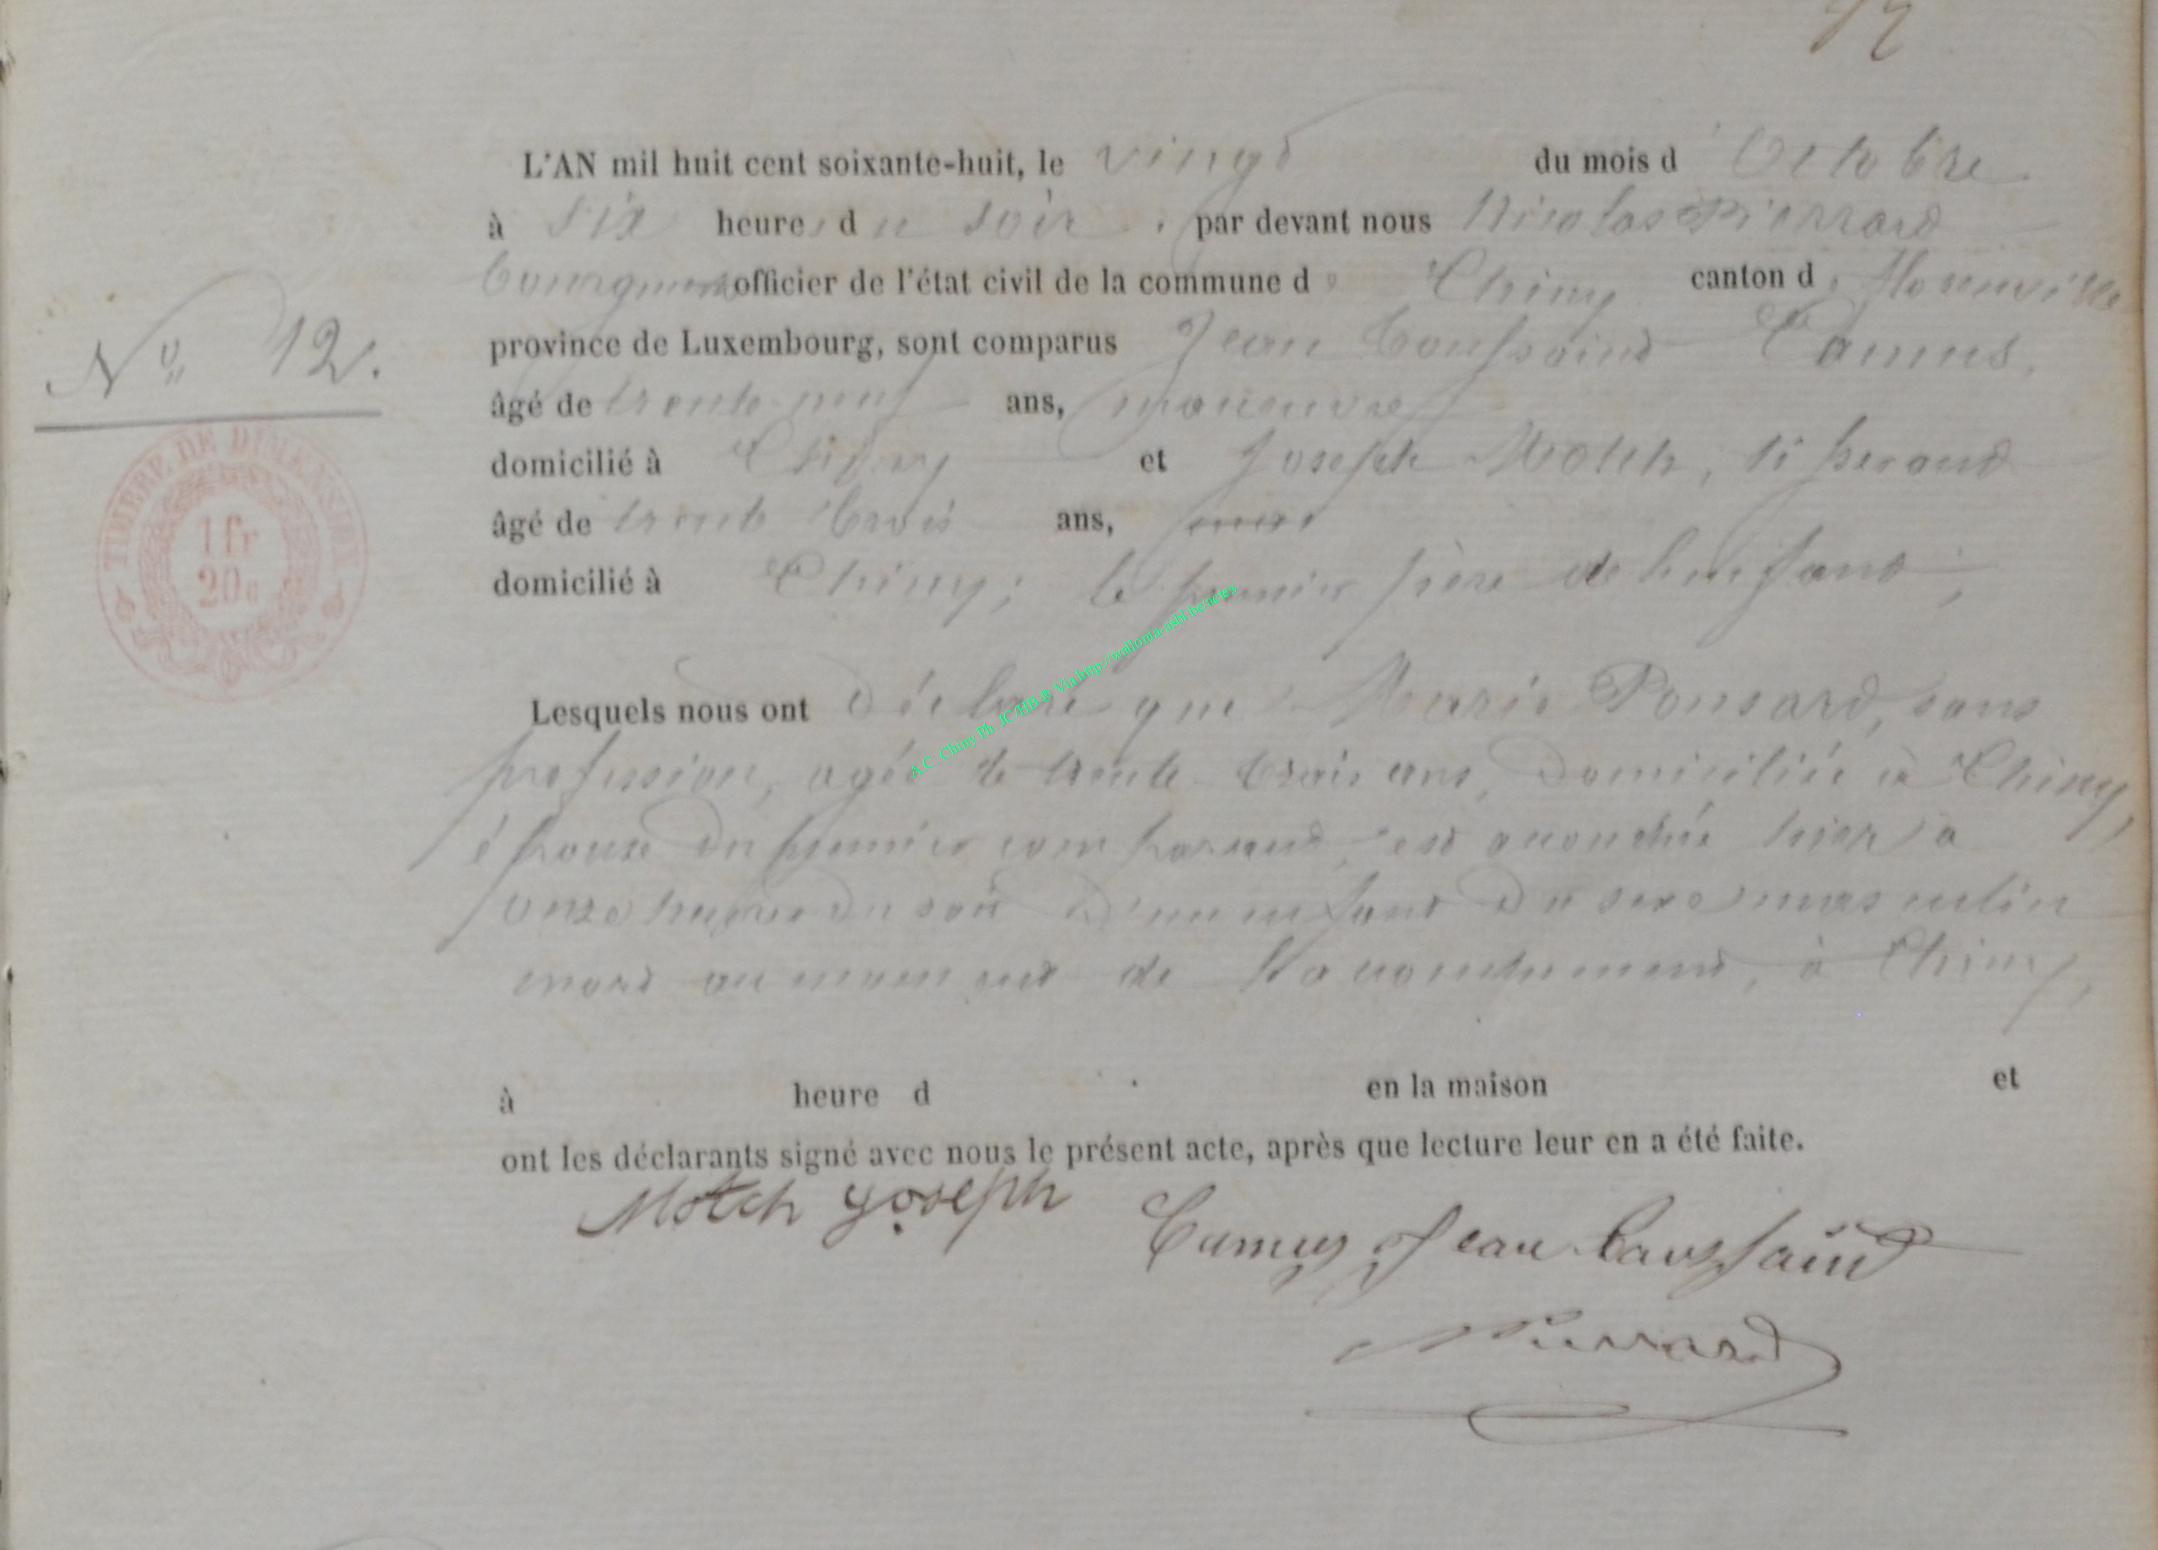 L'AN mil huit cent soixante-huit, le vingt du mois d'Octobre
à six heures du soir, par devant nous Nicolas Pierrard
bourgmestre officier de l'état civil de la commune de Chiny canton de Florenville
province de Luxembourg, sont comparus Jean Toussaint Camus,
âgé de trente neuf ans, manoeuvre
N° 12.
domicilié à Chiny et Joseph Motch, tisserand
âgé de trente trois ans,
domicilié à Chiny; le premier père de l'enfant;
TIMBRE DE DIMENSION
1 fr
20 c
Lesquels nous ont déclaré que Marie Ponsard, sans
profession, agée de trente trois ans, domiciliée à Chiny,
épouse du premier comparant, est accouchée hier à
onze heures du soir d'un enfant du sexe masculin
mort au moment de l'accouchement, à Chiny,
A.C. Chiny Ph. JC/HB & Via http://wallonia-asbl.be/actes
à heure d en la maison et
ont les déclarants signé avec nous le présent acte, après que lecture leur en a été faite.
Motch Joseph Camus Jean Toussaint
NPierrard